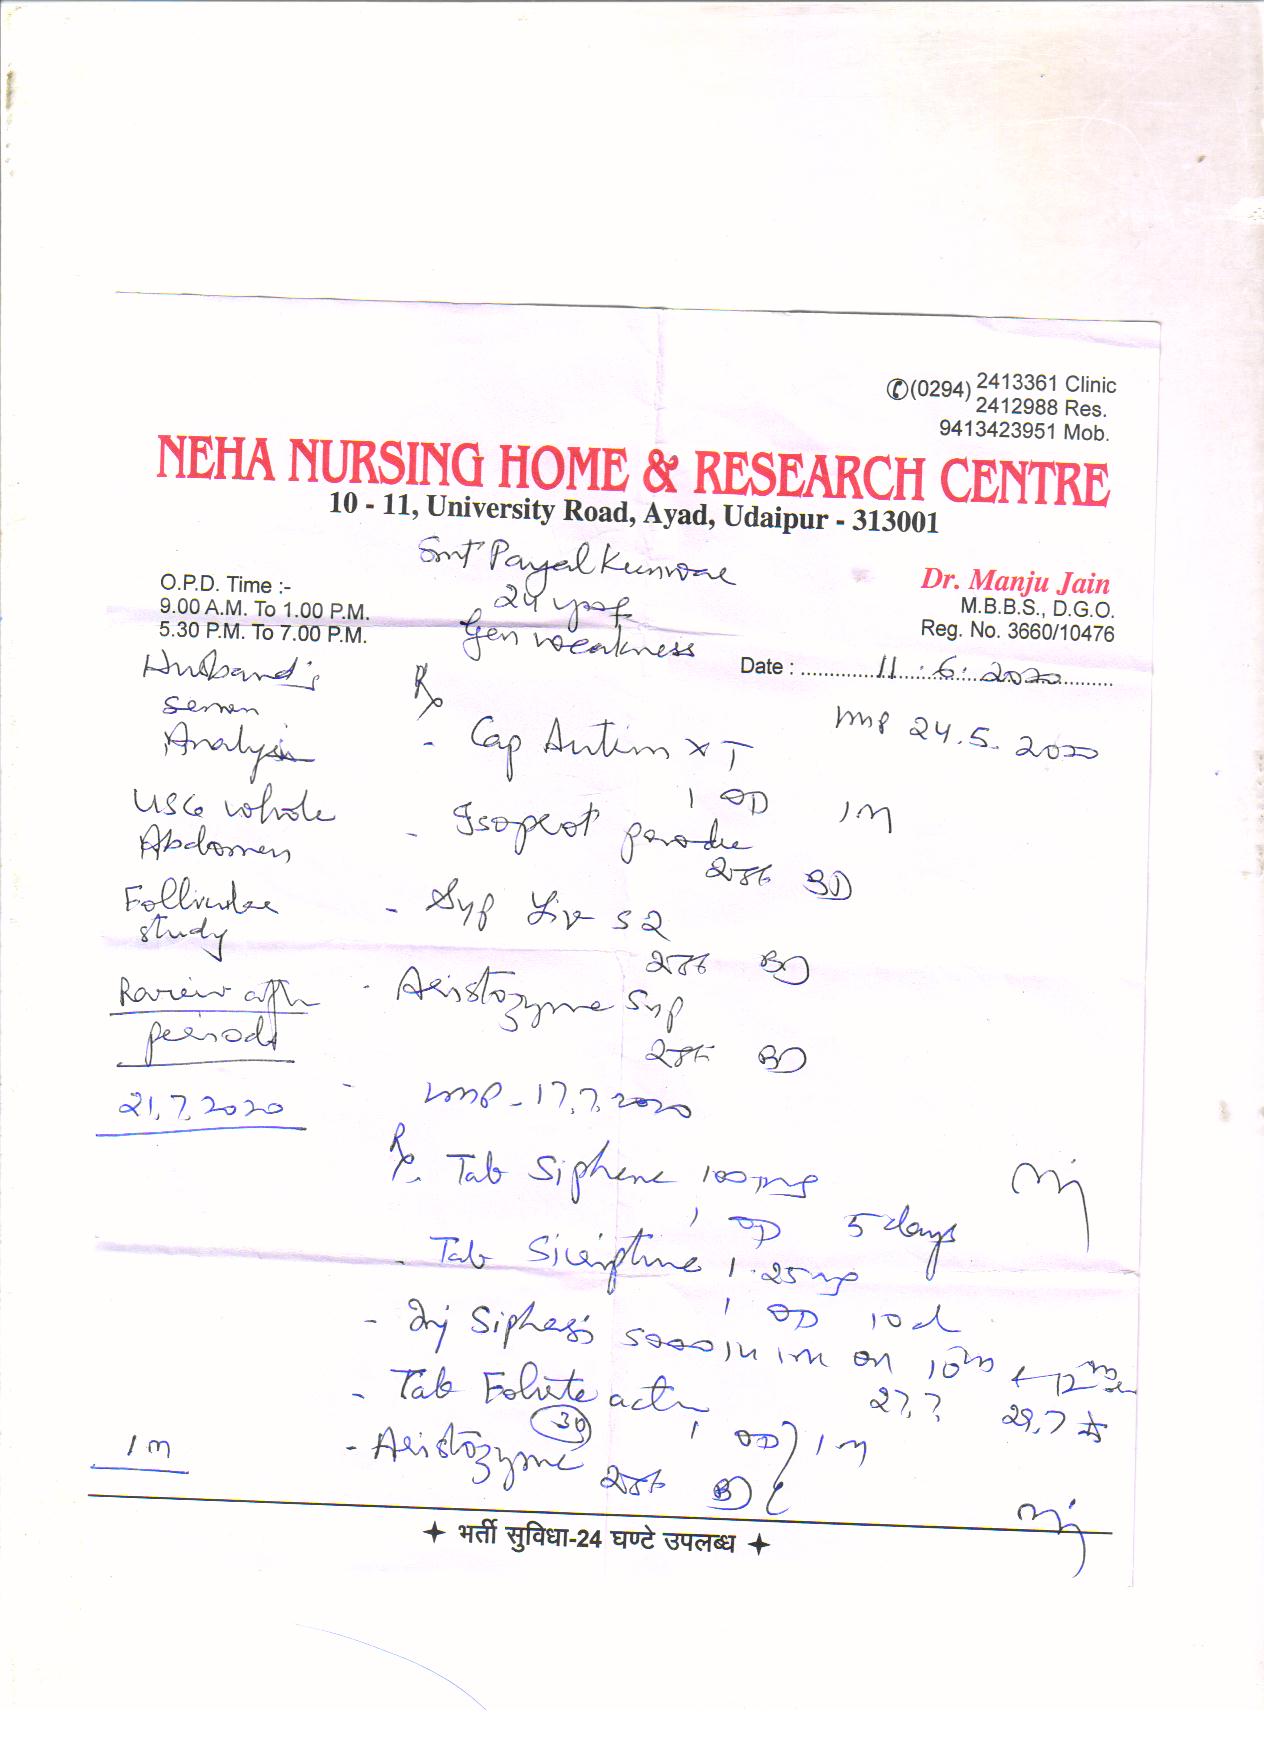 ✆(0294) 2413361 Clinic
2412988 Res.
9413423951 Mob.
NEHA NURSING HOME & RESEARCH CENTRE
10 - 11, University Road, Ayad, Udaipur - 313001
Smt Payal Kunwar
O.P.D. Time :-
9.00 A.M. To 1.00 P.M.
5.30 P.M. To 7.00 P.M.
24 yrs f
Gen weakness
Dr. Manju Jain
M.B.B.S., D.G.O.
Reg. No. 3660/10476
Date : 11.6.2020
LMP 24.5.2020
Husband's
semen
Analysis
USG whole
Abdomen
Follicular
study
Review after
periods
Rx
- Cap Autrin x T
1 OD 1M
-
2tsf BD
- Syp Liv 52
2tsf BD
- Aristozyme Syp
2tsf BD
21.7.2020
- LMP - 17.7.2020
Rx
- Tab Siphene 100mg
1 OD 5 days
- Tab Sicriptine 1.25mg
1 OD 10d
- Inj 5000 IU IM on 10th & 12th
27.7 29.7
- Tab Folvite
(30) 1 OD } 1M
- Aristozyme 2tsf BD
1M
✦ भर्ती सुविधा-24 घण्टे उपलब्ध ✦